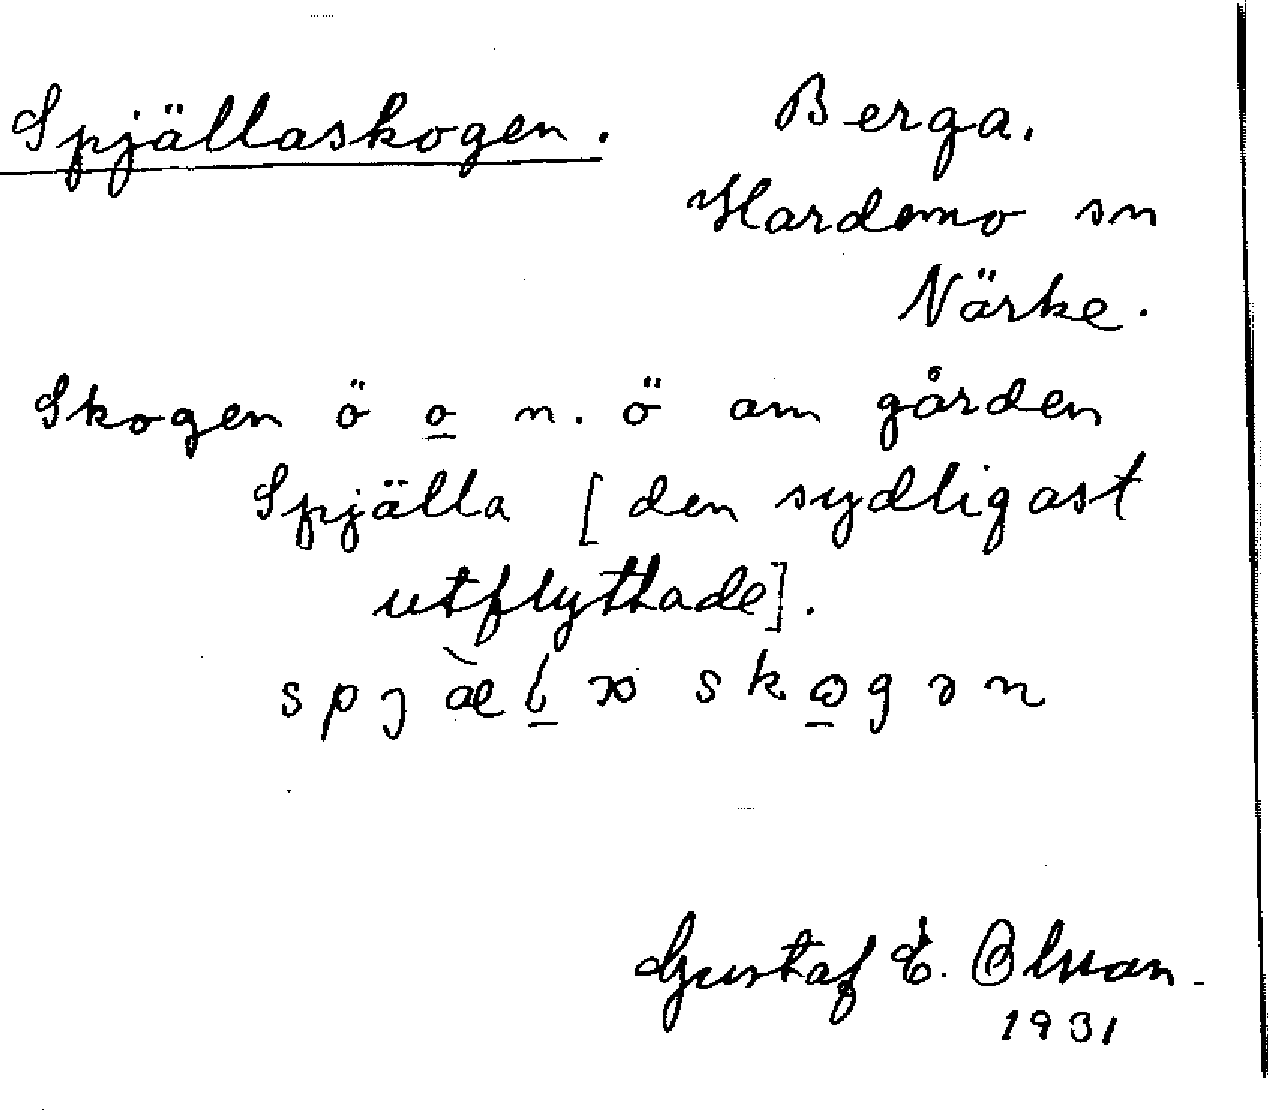 Spjällaskogen. Berga.
Hardemo sn
Närke.
Skogen ö o n. ö om gården
Spjälla [den sydligast
utflyttade].
Gustaf E. Olsson.
1931